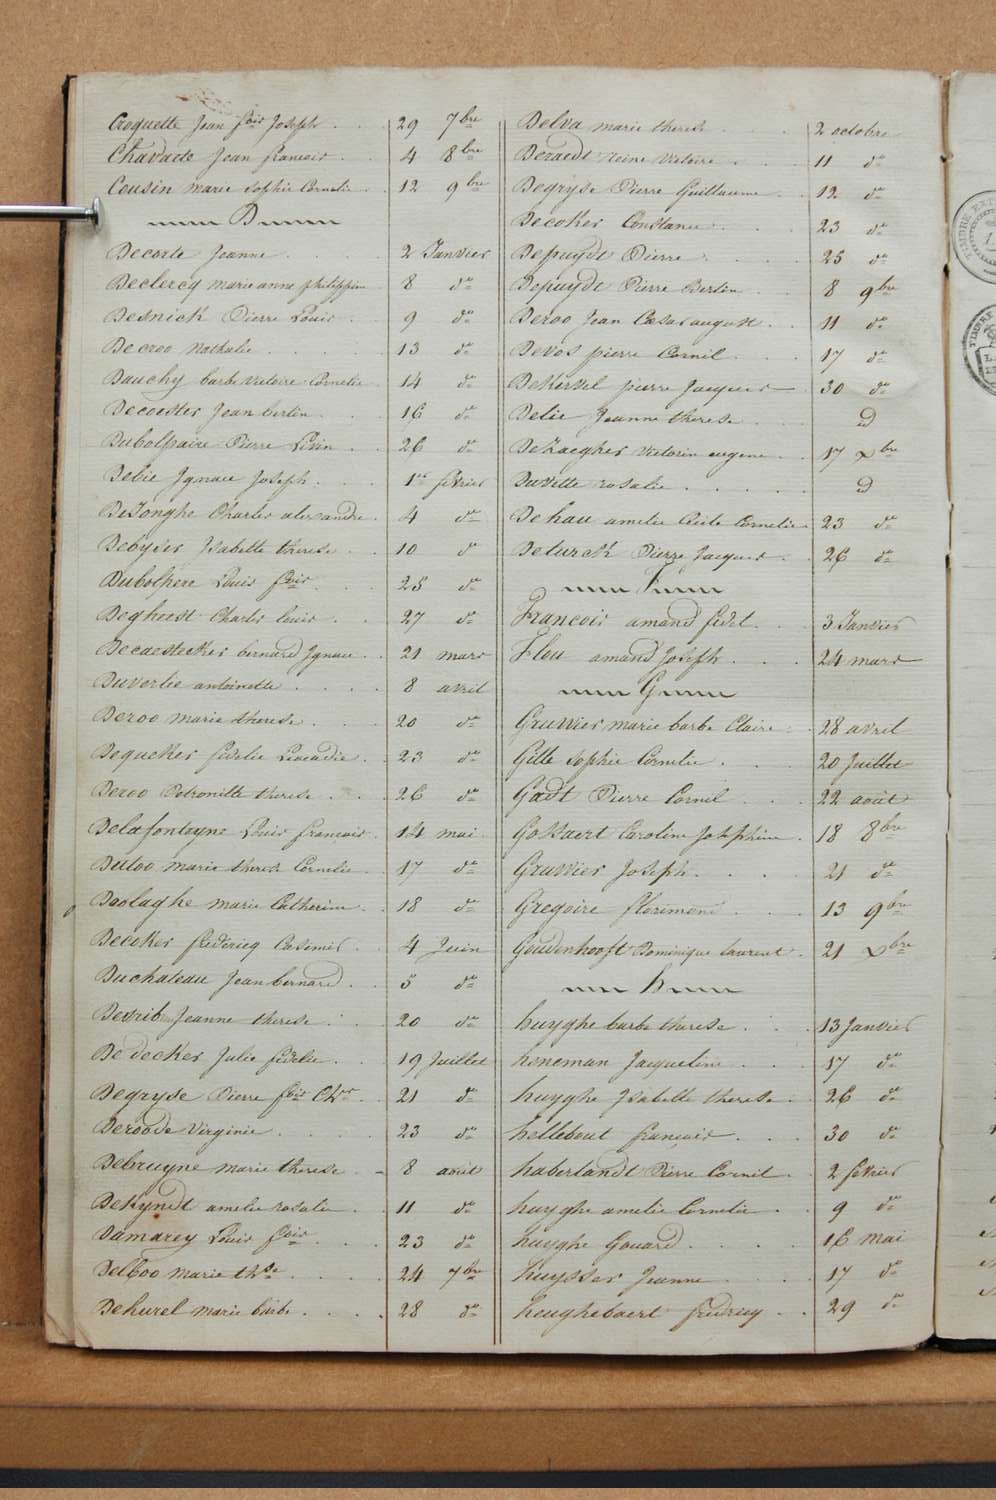 Croquette Jean fcois Joseph . . 29 7bre
Chavaete Jean francois . . 4 8bre
Cousin marie sophie Cornelie . 12 9bre
D
Decorte Jeanne . . . . . 2 Janvier
Declercq marie anne philippine 8 do
Desnick Pierre Louis . . 9 do
Decroo Nathalie . . . . . 13 do
Dauchy barbe victoire Cornelie . 14 do
Decoester Jean bertin . . . 16 do
Dubolpaire Pierre Livin . . 26 do
Debie Ignace Joseph . . . 1er février
DeJonghe Charles alexandre . 4 do
Debyser Isabelle therese . . 10 do
Dubolpere Louis fcois . . . 25 do
Degheest Charles louis . . 27 do
Decaestecker bernard Ignace . . 21 mars
Duverlie antoinette . . . . 8 avril
Deroo marie therese . . . 20 do
Dequeker fidelie Leocadie . . 23 do
Deroo Petronille therese . . 26 do
Delafonteyne Louis francois . 14 mai
Duloo marie therese Cornelie . 17 do
Doolaghe marie Catherine . . 18 do
Decoker fredericq Casimir . . 4 Juin
Duchateau Jean bernard . . 5 do
Devrib Jeanne therese . . 20 do
De decker Julie fidelie . . 19 Juillet
Degryse Pierre fcois . . 21 do
Deroode Virginie . . . . 23 do
Debruyne marie therese . . 8 août
DeKyndt amelie rosalie . . 11 do
Damarey Louis fcois . . . 23 do
Delboo marie thse . . . . 24 7bre
Dehurel marie barbe . . . . 28 do
Delva marie therese . . . . 2 octobre
Deraedt reine Victoire . . . 11 do
Degryse Pierre Guillaume . . 12 do
Decoker Constance . . . 23 do
Depuydt Pierre . . . . 25 do
Depuydt Pierre Bertin . . 8 9bre
Deroo Jean Cesar auguste . . 11 do
Devos pierre Cornil . . . 17 do
DeKervel pierre Jacques 30 do
Delie Jeanne therese . . . D
DeZaegher Victorin eugene . . 17 Xbre
Duvette rosalie . . . . . D
Dehau amelie Cecile Cornelie 23 do
Deturck Pierre Jacques . . 26 do
F
Francois amand fidel . . . 3 Janvier
Flou amand Joseph . . . 24 mars
G
Gruwier marie barbe Claire . 28 avril
Gille Sophie Cornelie . . . 20 Juillet
Gadt Pierre Cornil . . . 22 août
Gossaert Caroline Josephine . 18 8bre
Gruwier Joseph . . . . 21 do
Gregoire florimond . . . 13 9bre
Goudenhooft Dominique laurent . 21 Xbre
h
huyghe barbe therese . . . 13 Janvier
honeman Jacqueline . . . 17 do
huyghe Isabelle therese . . 26 do
hellebout francois . . . 30 do
haberlandt Pierre Cornil . . 2 février
huyghe amelie Cornelie . . 9 do
huyghe Gouard . . . . 16 mai
huysser Jeanne . . . . 17 do
heughebaert fredericq . . 29 do